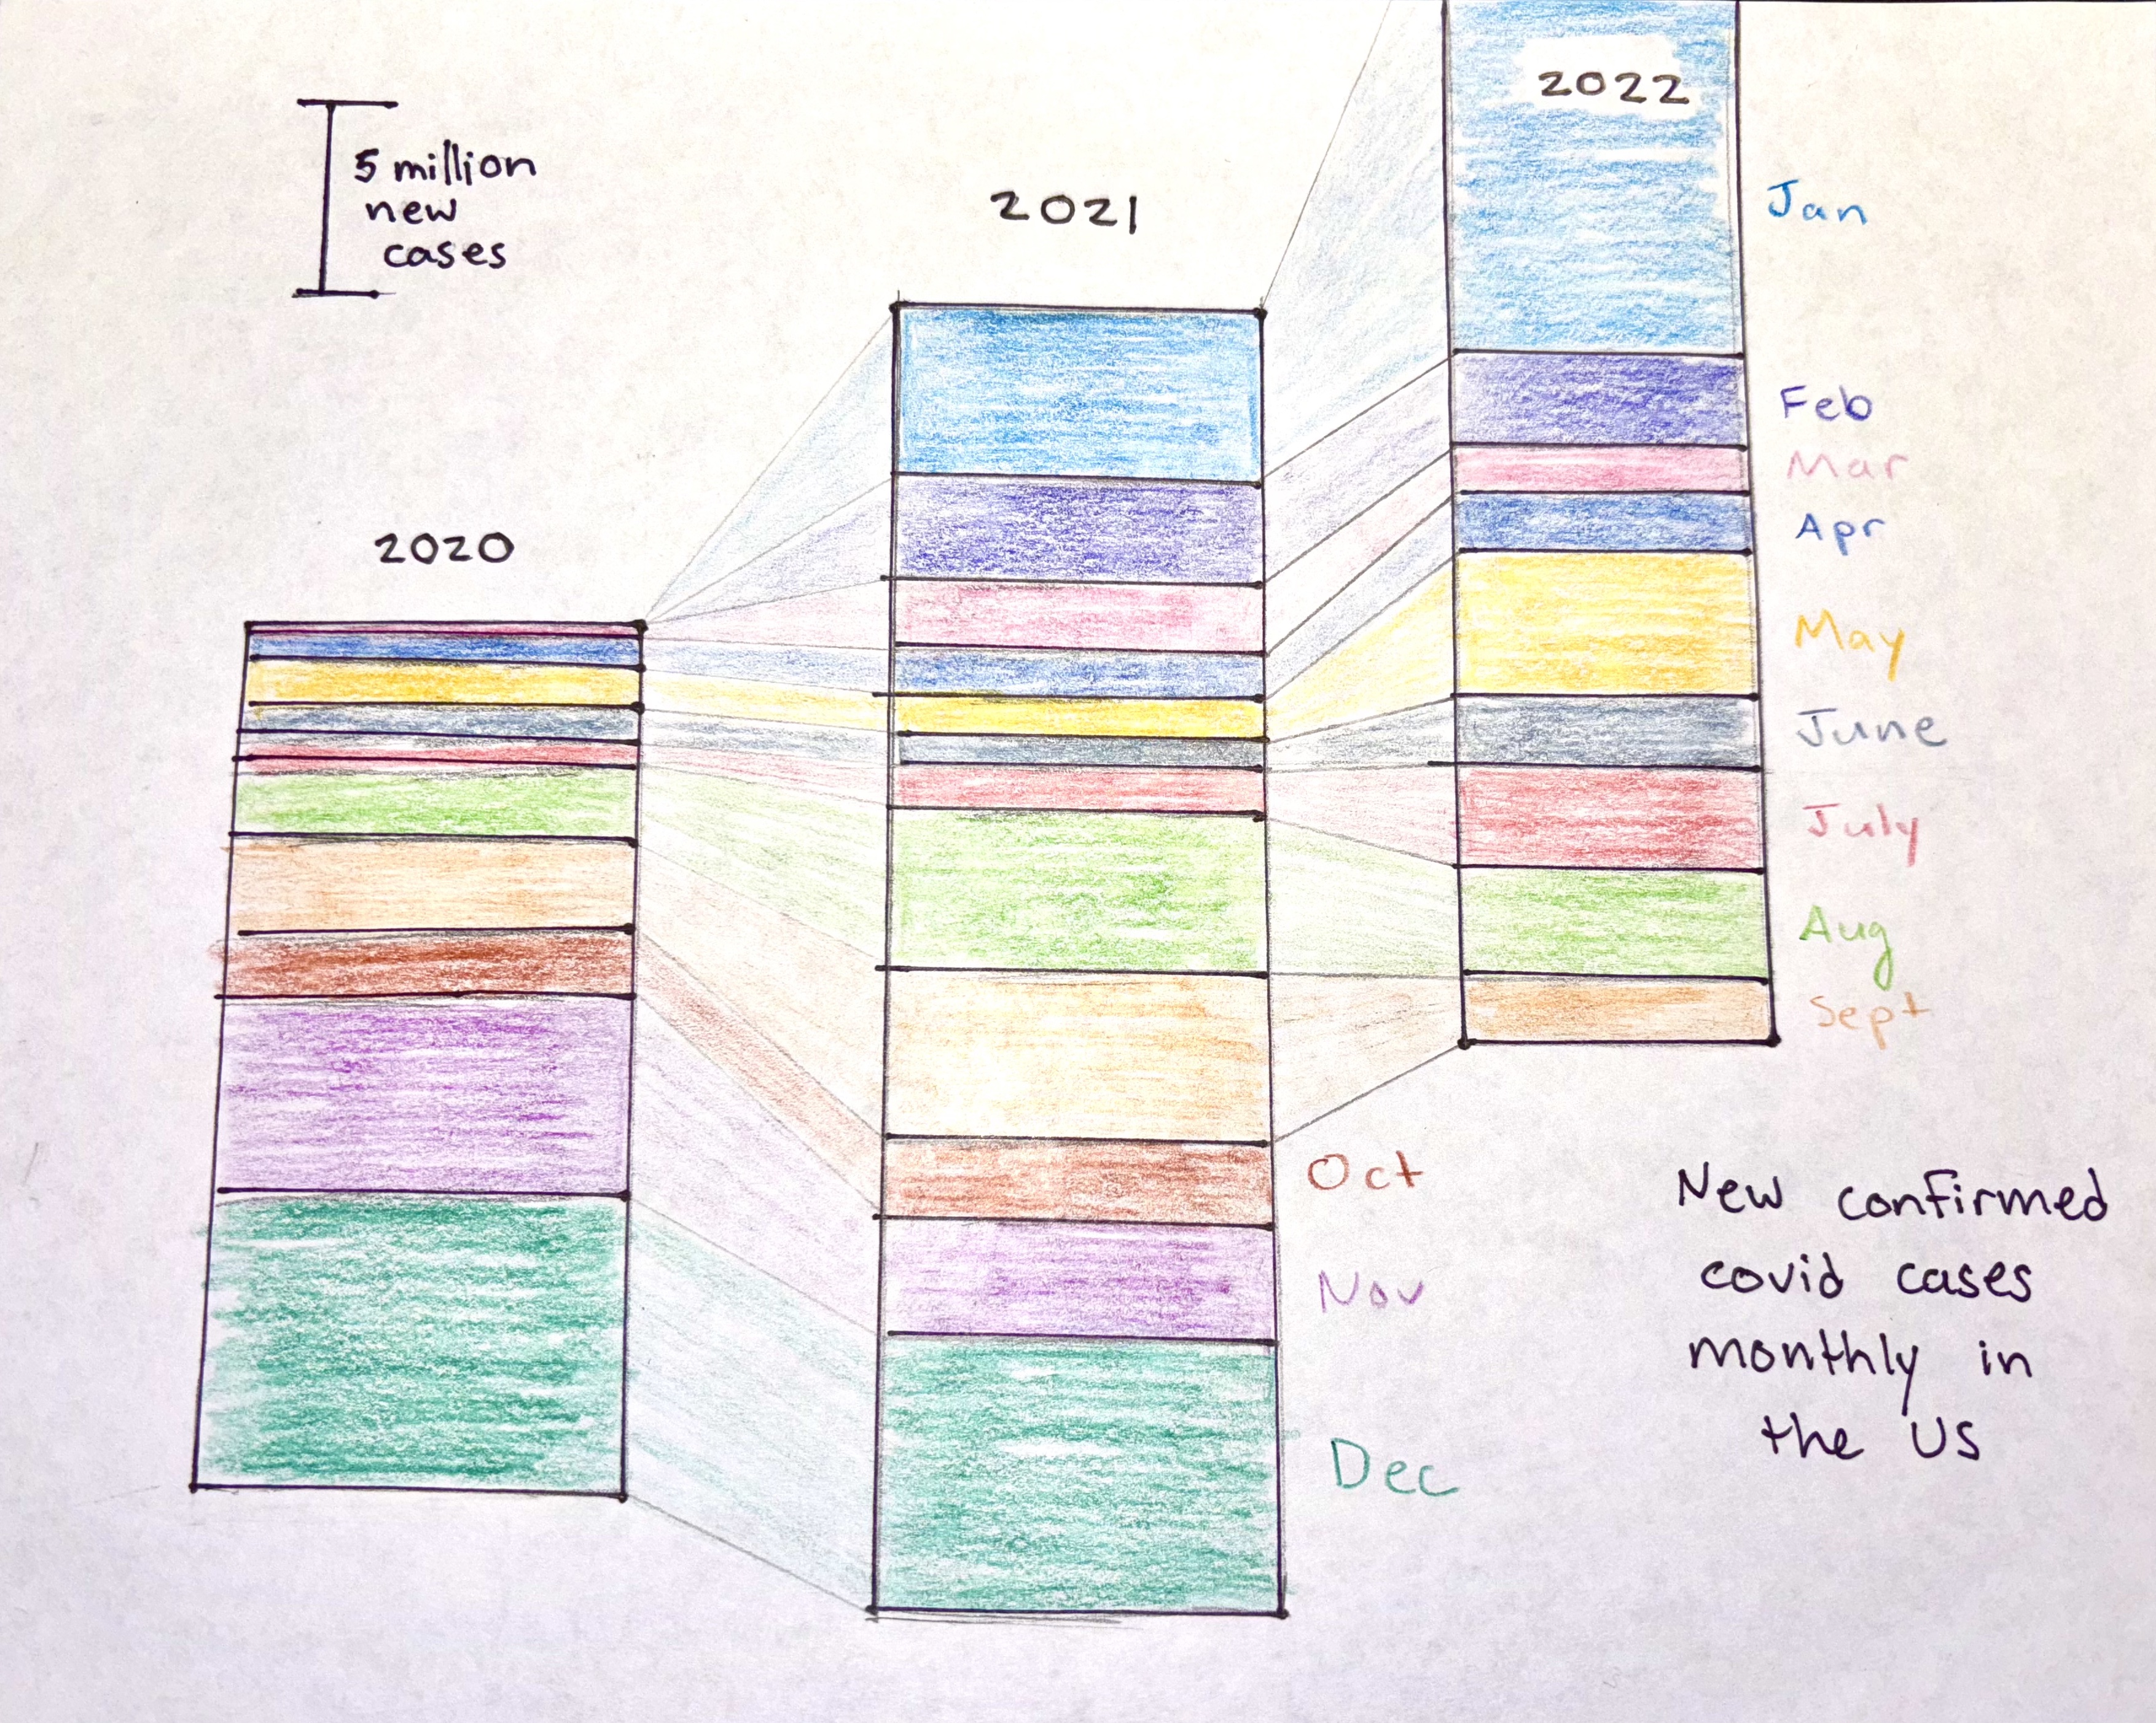 2022
5 million
new
cases
2021
Jan
2020
Feb
Mar
Apr
May
June
July
Aug
Sept
Oct
Nov
Dec
New confirmed
covid cases
monthly in
the US